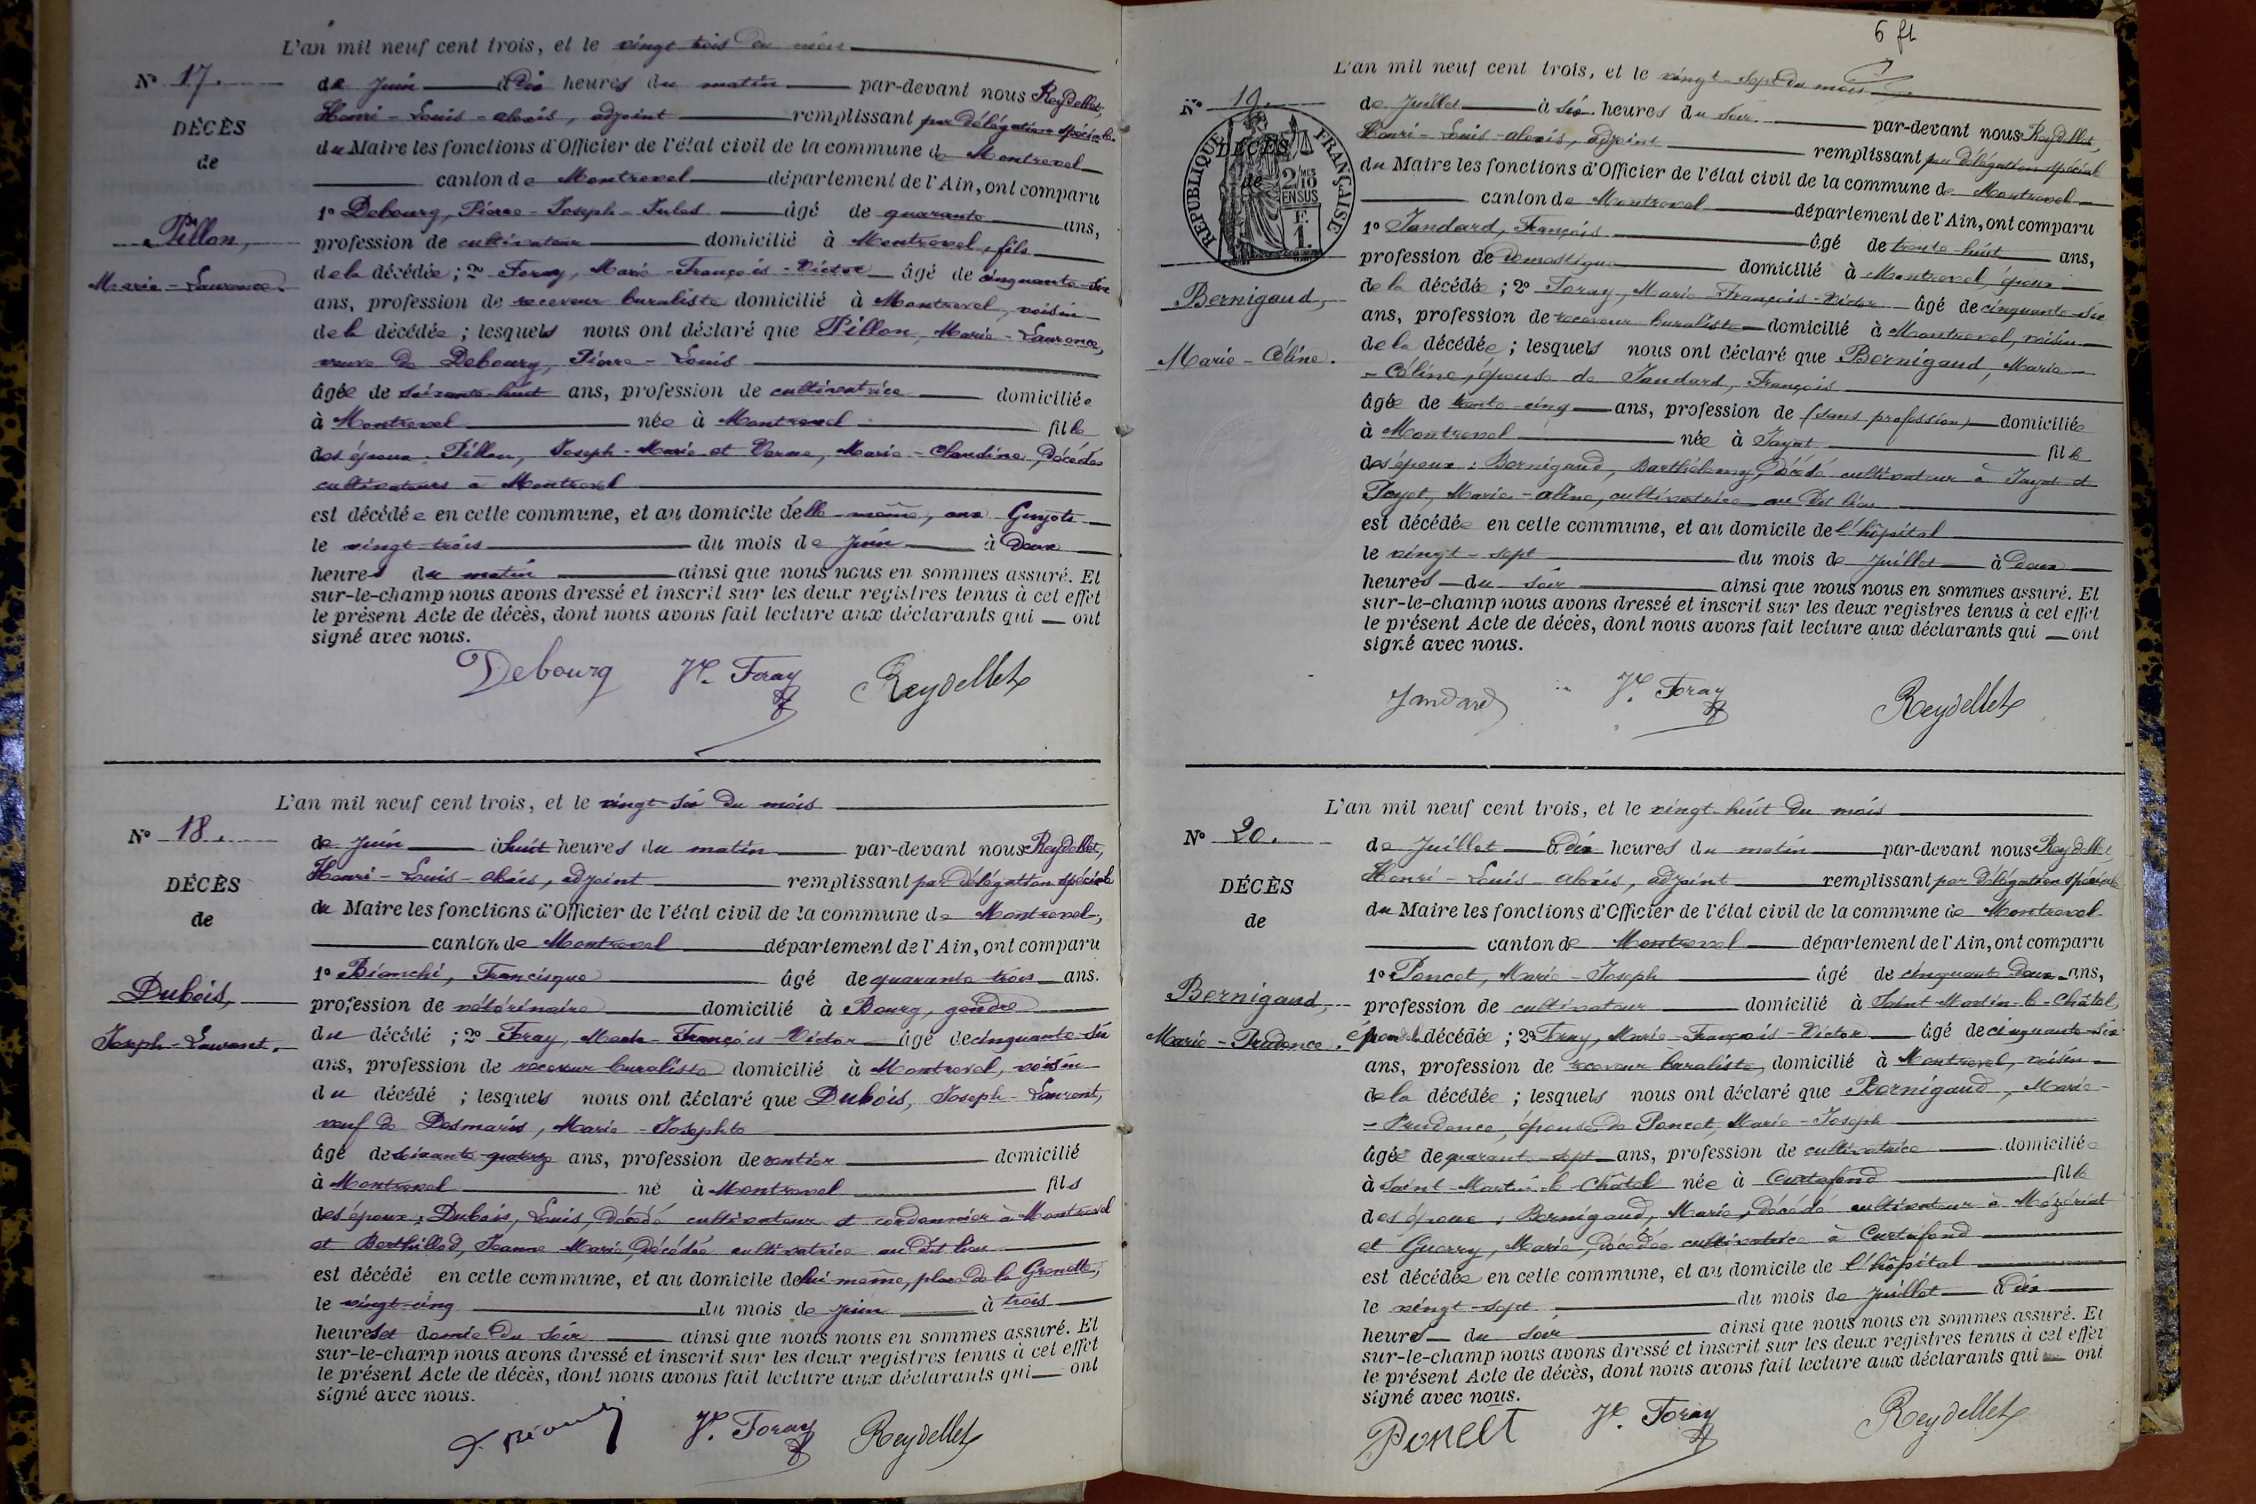 L'an mil neuf cent trois, et le vingt trois du mois
N° 17.
de Juin à Dix heures du matin par-devant nous Reydellet,
Henri - Louis - alexis, adjoint remplissant par Délégation spéciale
DÉCÈS
du Maire les fonctions d'Officier de l'état civil de la commune de Montrevel
de
canton de Montrevel département de l'Ain, ont comparu
1° Debourg, Pierre - Joseph - Jules âgé de quarante ans,
Pillon,
profession de cultivateur domicilié à Montrevel, fils
Marie - Laurence.
de la décédée ; 2° Foray, Marie - François - Victor âgé de cinquante-six
ans, profession de receveur buraliste domicilié à Montrevel, voisin
de la décédée ; lesquels nous ont déclaré que Pillon, Marie - Laurence,
veuve de Debourg, Pierre - Louis
âgée de soixante-huit ans, profession de cultivatrice domiciliée
à Montrevel née à Montrevel fille
des époux : Pillon, Joseph - Marie et Verne, Marie - Claudine, Décédés
cultivateurs à Montrevel
est décédée en cette commune, et au domicile d'elle-même, aux Guyots
le vingt-trois du mois de Juin à Deux
heures du matin ainsi que nous nous en sommes assuré. Et
sur-le-champ nous avons dressé et inscrit sur les deux registres tenus à cet effet
le présent Acte de décès, dont nous avons fait lecture aux déclarants qui ont
signé avec nous.
Debourg Vr. Foray Reydellet
L'an mil neuf cent trois, et le vingt-six du mois
N° 18.
de Juin à huit heures du matin par-devant nous Reydellet,
Henri - Louis - alexis, adjoint remplissant par Délégation spéciale
DÉCÈS
du Maire les fonctions d'Officier de l'état civil de la commune de Montrevel,
de
canton de Montrevel département de l'Ain, ont comparu
1° Bianchi, Francisque âgé de quarante-trois ans.
Dubois,
profession de vétérinaire domicilié à Bourg, gendre
Joseph - Laurent.
du décédé ; 2° Foray, Marie - François - Victor âgé de cinquante-six
ans, profession de receveur buraliste domicilié à Montrevel, voisin
du décédé ; lesquels nous ont déclaré que Dubois, Joseph - Laurent,
veuf de Desmaris, Marie - Josephte
âgé de soixante-quatorze ans, profession de rentier domicilié
à Montrevel né à Montrevel fils
des époux : Dubois, Louis, Décédé cultivateur et cordonnier à Montrevel
et Berthillod, Jeanne Marie, Décédée cultivatrice au dit lieu
est décédé en cette commune, et au domicile de lui-même, place de la Grenette,
le vingt-cinq du mois de Juin à trois
heures et demie du soir ainsi que nous nous en sommes assuré. Et
sur-le-champ nous avons dressé et inscrit sur les deux registres tenus à cet effet
le présent Acte de décès, dont nous avons fait lecture aux déclarants qui ont
signé avec nous.
Vr. Foray Reydellet
6 ft
L'an mil neuf cent trois, et le vingt-sept du mois
N° 19.
de Juillet à six heures du soir par-devant nous Reydellet,
Henri - Louis - alexis, adjoint remplissant par Délégation spéciale
DÉCÈS
de
RÉPUBLIQUE FRANÇAISE
2/10 MES EN SUS
F. 1.
du Maire les fonctions d'Officier de l'état civil de la commune de Montrevel
canton de Montrevel département de l'Ain, ont comparu
1° Jandard, François âgé de trente-huit ans,
profession de domestique domicilié à Montrevel, époux
Bernigaud,
de la décédée ; 2° Foray, Marie - François - Victor âgé de cinquante-six
ans, profession de receveur buraliste domicilié à Montrevel, voisin
Marie - Céline.
de la décédée ; lesquels nous ont déclaré que Bernigaud, Marie
- Céline, épouse de Jandard, François
âgée de trente-cinq ans, profession de (sans profession) domiciliée
à Montrevel née à Jayat fille
des époux : Bernigaud, Barthélemy, Décédé cultivateur à Jayat et
Payet, Marie - aline, cultivatrice au dit lieu
est décédée en cette commune, et au domicile de l'hôpital
le vingt-sept du mois de Juillet à Deux
heures du soir ainsi que nous nous en sommes assuré. Et
sur-le-champ nous avons dressé et inscrit sur les deux registres tenus à cet effet
le présent Acte de décès, dont nous avons fait lecture aux déclarants qui ont
signé avec nous.
Jandard Vr. Foray Reydellet
L'an mil neuf cent trois, et le vingt-huit du mois
N° 20.
de Juillet à dix heures du matin par-devant nous Reydellet,
Henri - Louis - alexis, adjoint remplissant par Délégation spéciale
DÉCÈS
du Maire les fonctions d'Officier de l'état civil de la commune de Montrevel
de
canton de Montrevel département de l'Ain, ont comparu
1° Poncet, Marie - Joseph âgé de cinquante Deux ans,
Bernigaud,
profession de cultivateur domicilié à Saint Martin-le-Châtel,
Marie - Prudence.
époux de la décédée ; 2° Foray, Marie - François - Victor âgé de cinquante-six
ans, profession de receveur buraliste, domicilié à Montrevel, voisin
de la décédée ; lesquels nous ont déclaré que Bernigaud, Marie -
- Prudence, épouse de Poncet, Marie - Joseph
âgée de quarante-sept ans, profession de cultivatrice domiciliée
à Saint-Martin-le-Châtel née à Curtafond fille
des époux : Bernigaud, Marie, Décédé cultivateur à Mézériat
et Guerry, Marie, Décédée cultivatrice à Curtafond
est décédée en cette commune, et au domicile de l'hôpital
le vingt-sept du mois de Juillet à dix
heures du soir ainsi que nous nous en sommes assuré. Et
sur-le-champ nous avons dressé et inscrit sur les deux registres tenus à cet effet
le présent Acte de décès, dont nous avons fait lecture aux déclarants qui ont
signé avec nous.
Poncet Vr. Foray Reydellet